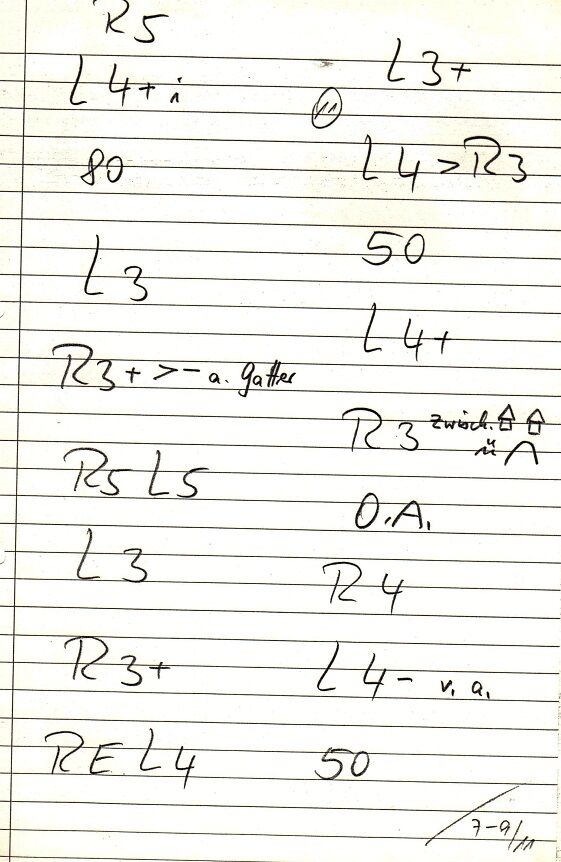 R5
L4+ i
80
L3
R3+ >- a. Gatter
R5 L5
L3
R3+
RE L4
L3+
11
L4>R3
50
L4+
R3 zwisch.
ü
O.A.
R4
L4- v. a.
50
7-9/11